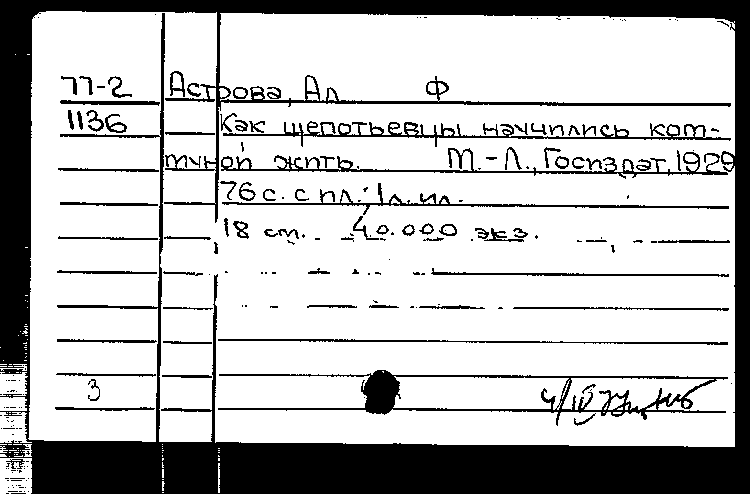 77-2 Астрова, Ал Ф
1136 Как щепотьевцы научились ком-
муной жить. М.-Л., Госиздат, 1929
76 с. с пл.; 1 л. ил.
18 см. 40.000 экз.
3